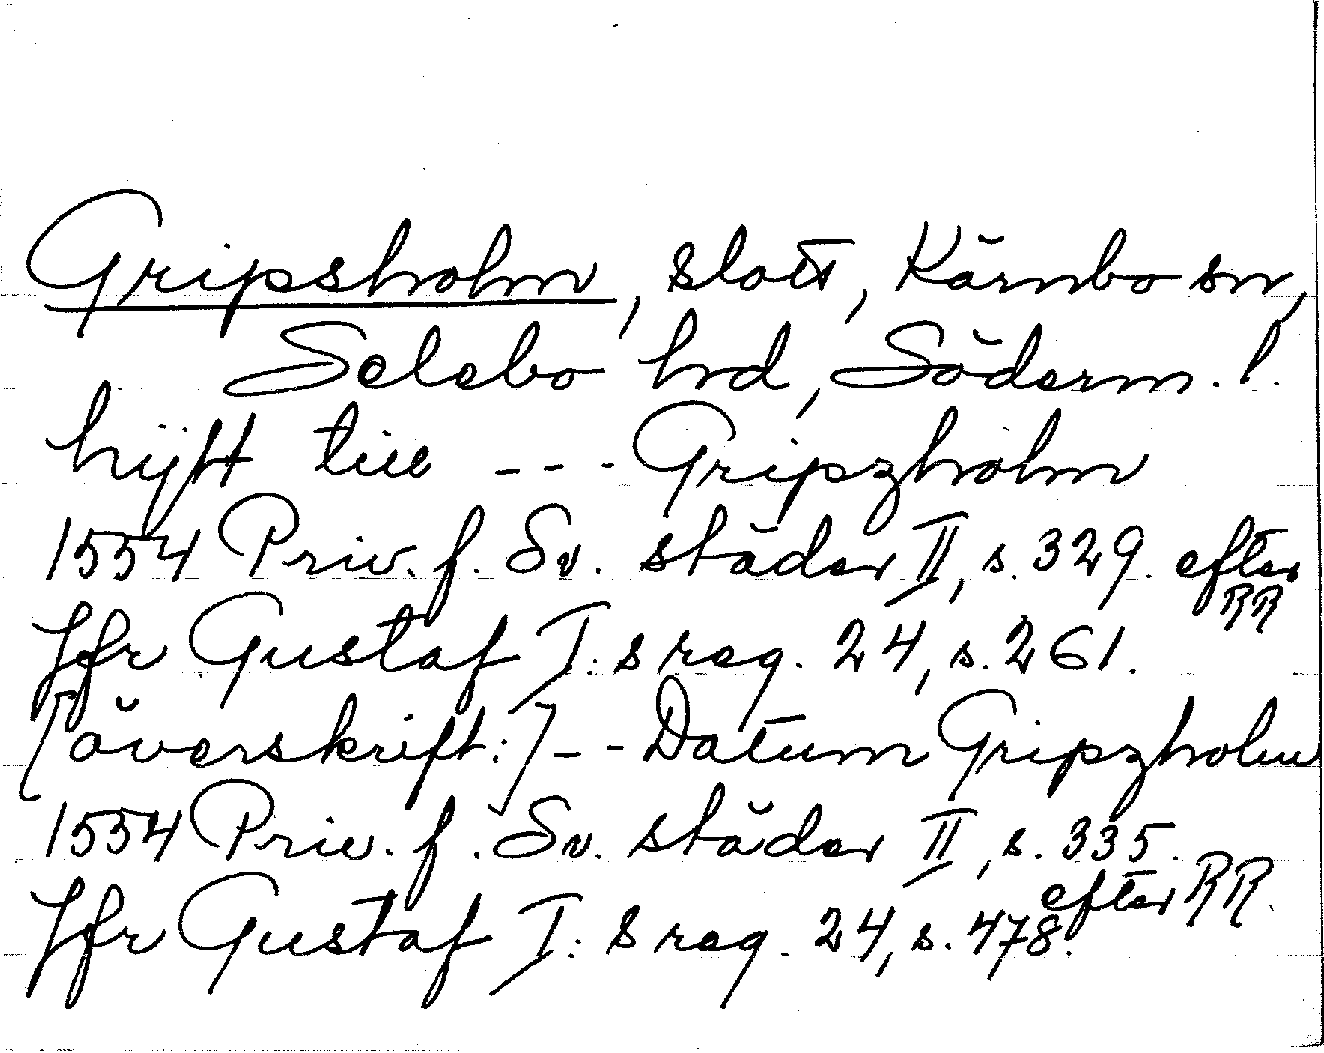 Gripsholm, slott, Kärnbo sn,
Selebo hd, Söderm. l.
hijtt till --- Gripzholm
1554 Priv. f. Sv. städer II, s. 329. efter RR
Jfr Gustaf I:s reg. 24, s. 261.
[överskrift:] -- Datum Gripzholm
1554 Priv. f. Sv. städer II, s. 335.
efter RR.
Jfr Gustaf I:s reg. 24, s. 478.